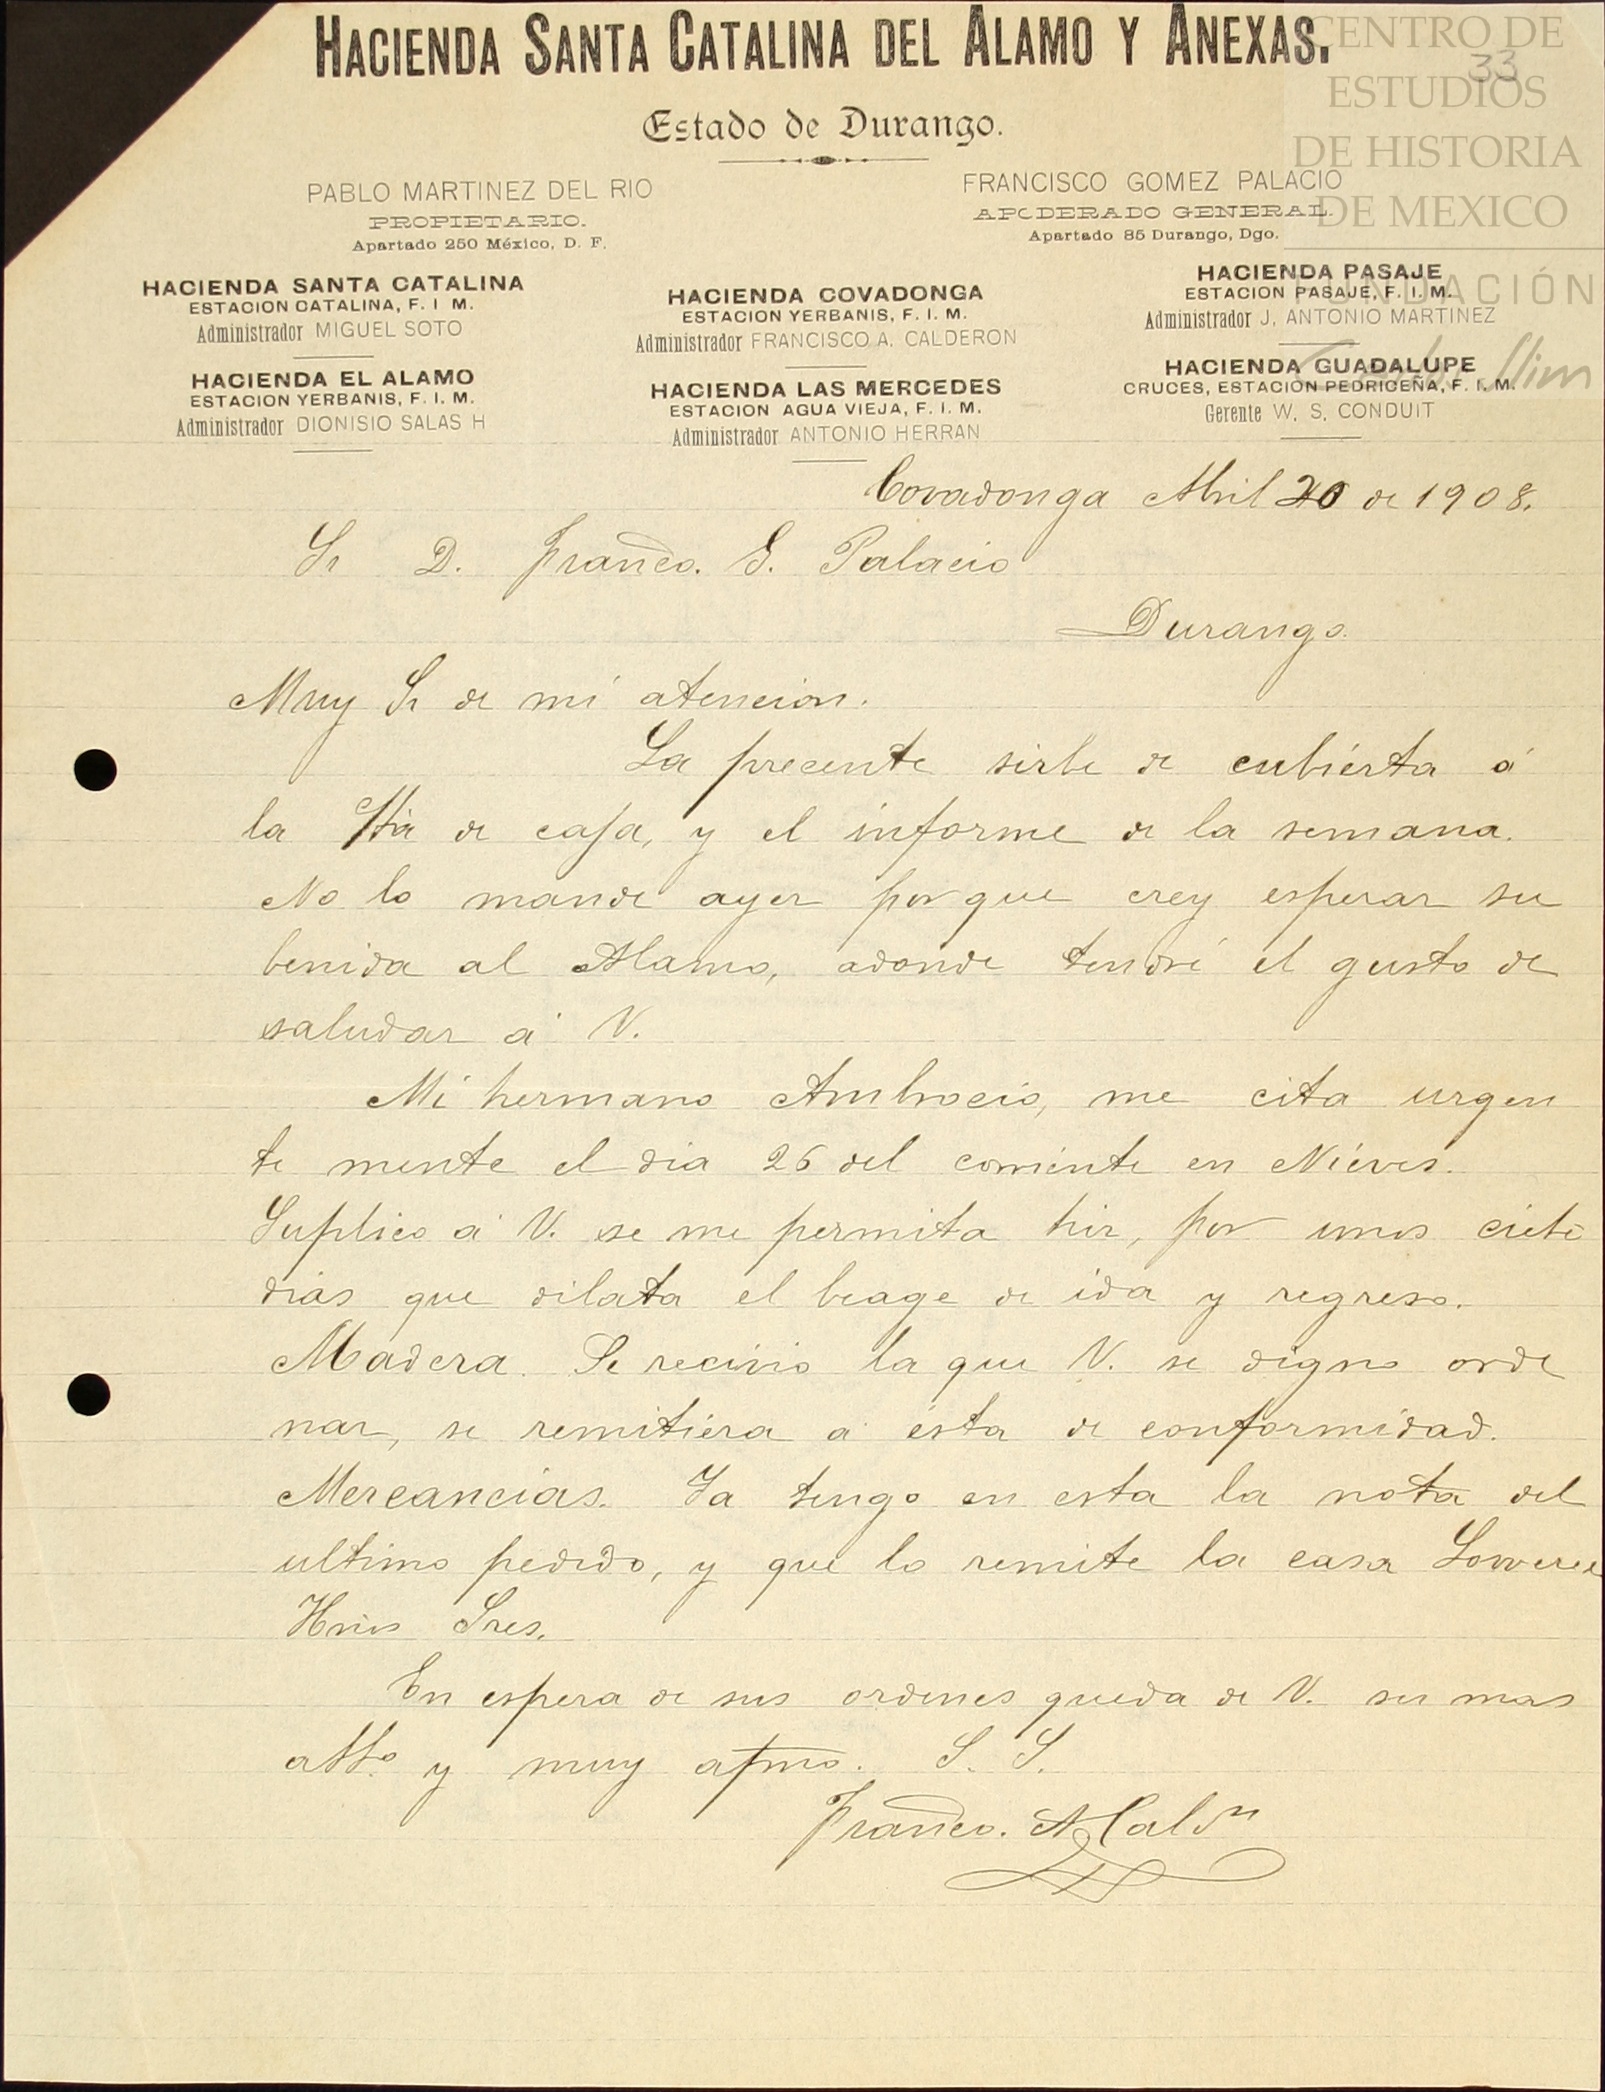 HACIENDA SANTA CATALINA DEL ALAMO Y ANEXAS.
Estado de Durango.
PABLO MARTINEZ DEL RIO
PROPIETARIO.
Apartado 250 México, D. F.
FRANCISCO GOMEZ PALACIO
APODERADO GENERAL.
Apartado 85 Durango, Dgo.
HACIENDA SANTA CATALINA
ESTACION CATALINA, F. I M.
Administrador MIGUEL SOTO
HACIENDA EL ALAMO
ESTACION YERBANIS, F. I. M.
Administrador DIONISIO SALAS H
HACIENDA COVADONGA
ESTACION YERBANIS, F. I. M.
Administrador FRANCISCO A. CALDERON
HACIENDA LAS MERCEDES
ESTACION AGUA VIEJA, F. I. M.
Administrador ANTONIO HERRAN
HACIENDA PASAJE
ESTACION PASAJE, F. I. M.
Administrador J. ANTONIO MARTINEZ
HACIENDA GUADALUPE
CRUCES, ESTACION PEDRICEÑA, F. I. M.
Gerente W. S. CONDUIT
CENTRO DE
ESTUDIOS
DE HISTORIA
DE MEXICO
FUNDACIÓN
33
Covadonga Abril 20 de 1908.
Sr D. Franco. G. Palacio
Durango.
Muy Sr de mi atencion.
La precente sirbe de cubiérta á
la de caja, y el informe de la semana.
No lo mande ayer por que crey esperar su
benida al Alamo, adonde tendré el gusto de
saludar á V.
Mi hermano Ambrocio, me cita urgen
te mente el dia 26 del corriente en Niéves.
Suplico á V. se me permita hir, por unos ciete
dias que dilata el beage de ida y regreso.
Madera. Se recivio la que V. se digno orde
nar, se remitiéra á ésta de conformidad.
Mercancias. Ya tengo en esta la nota del
ultimo pedido, y que lo remite la casa
Hnos Sres.
En espera de sus ordenes queda de V. su mas
atto. y muy afmo. S. S.
Franco. A Caldn